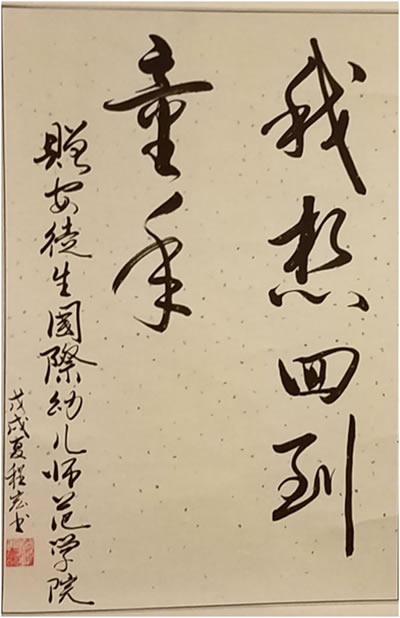 我想回到
童年
赠安徒生国际幼儿师范学院
戊戌夏程宏书